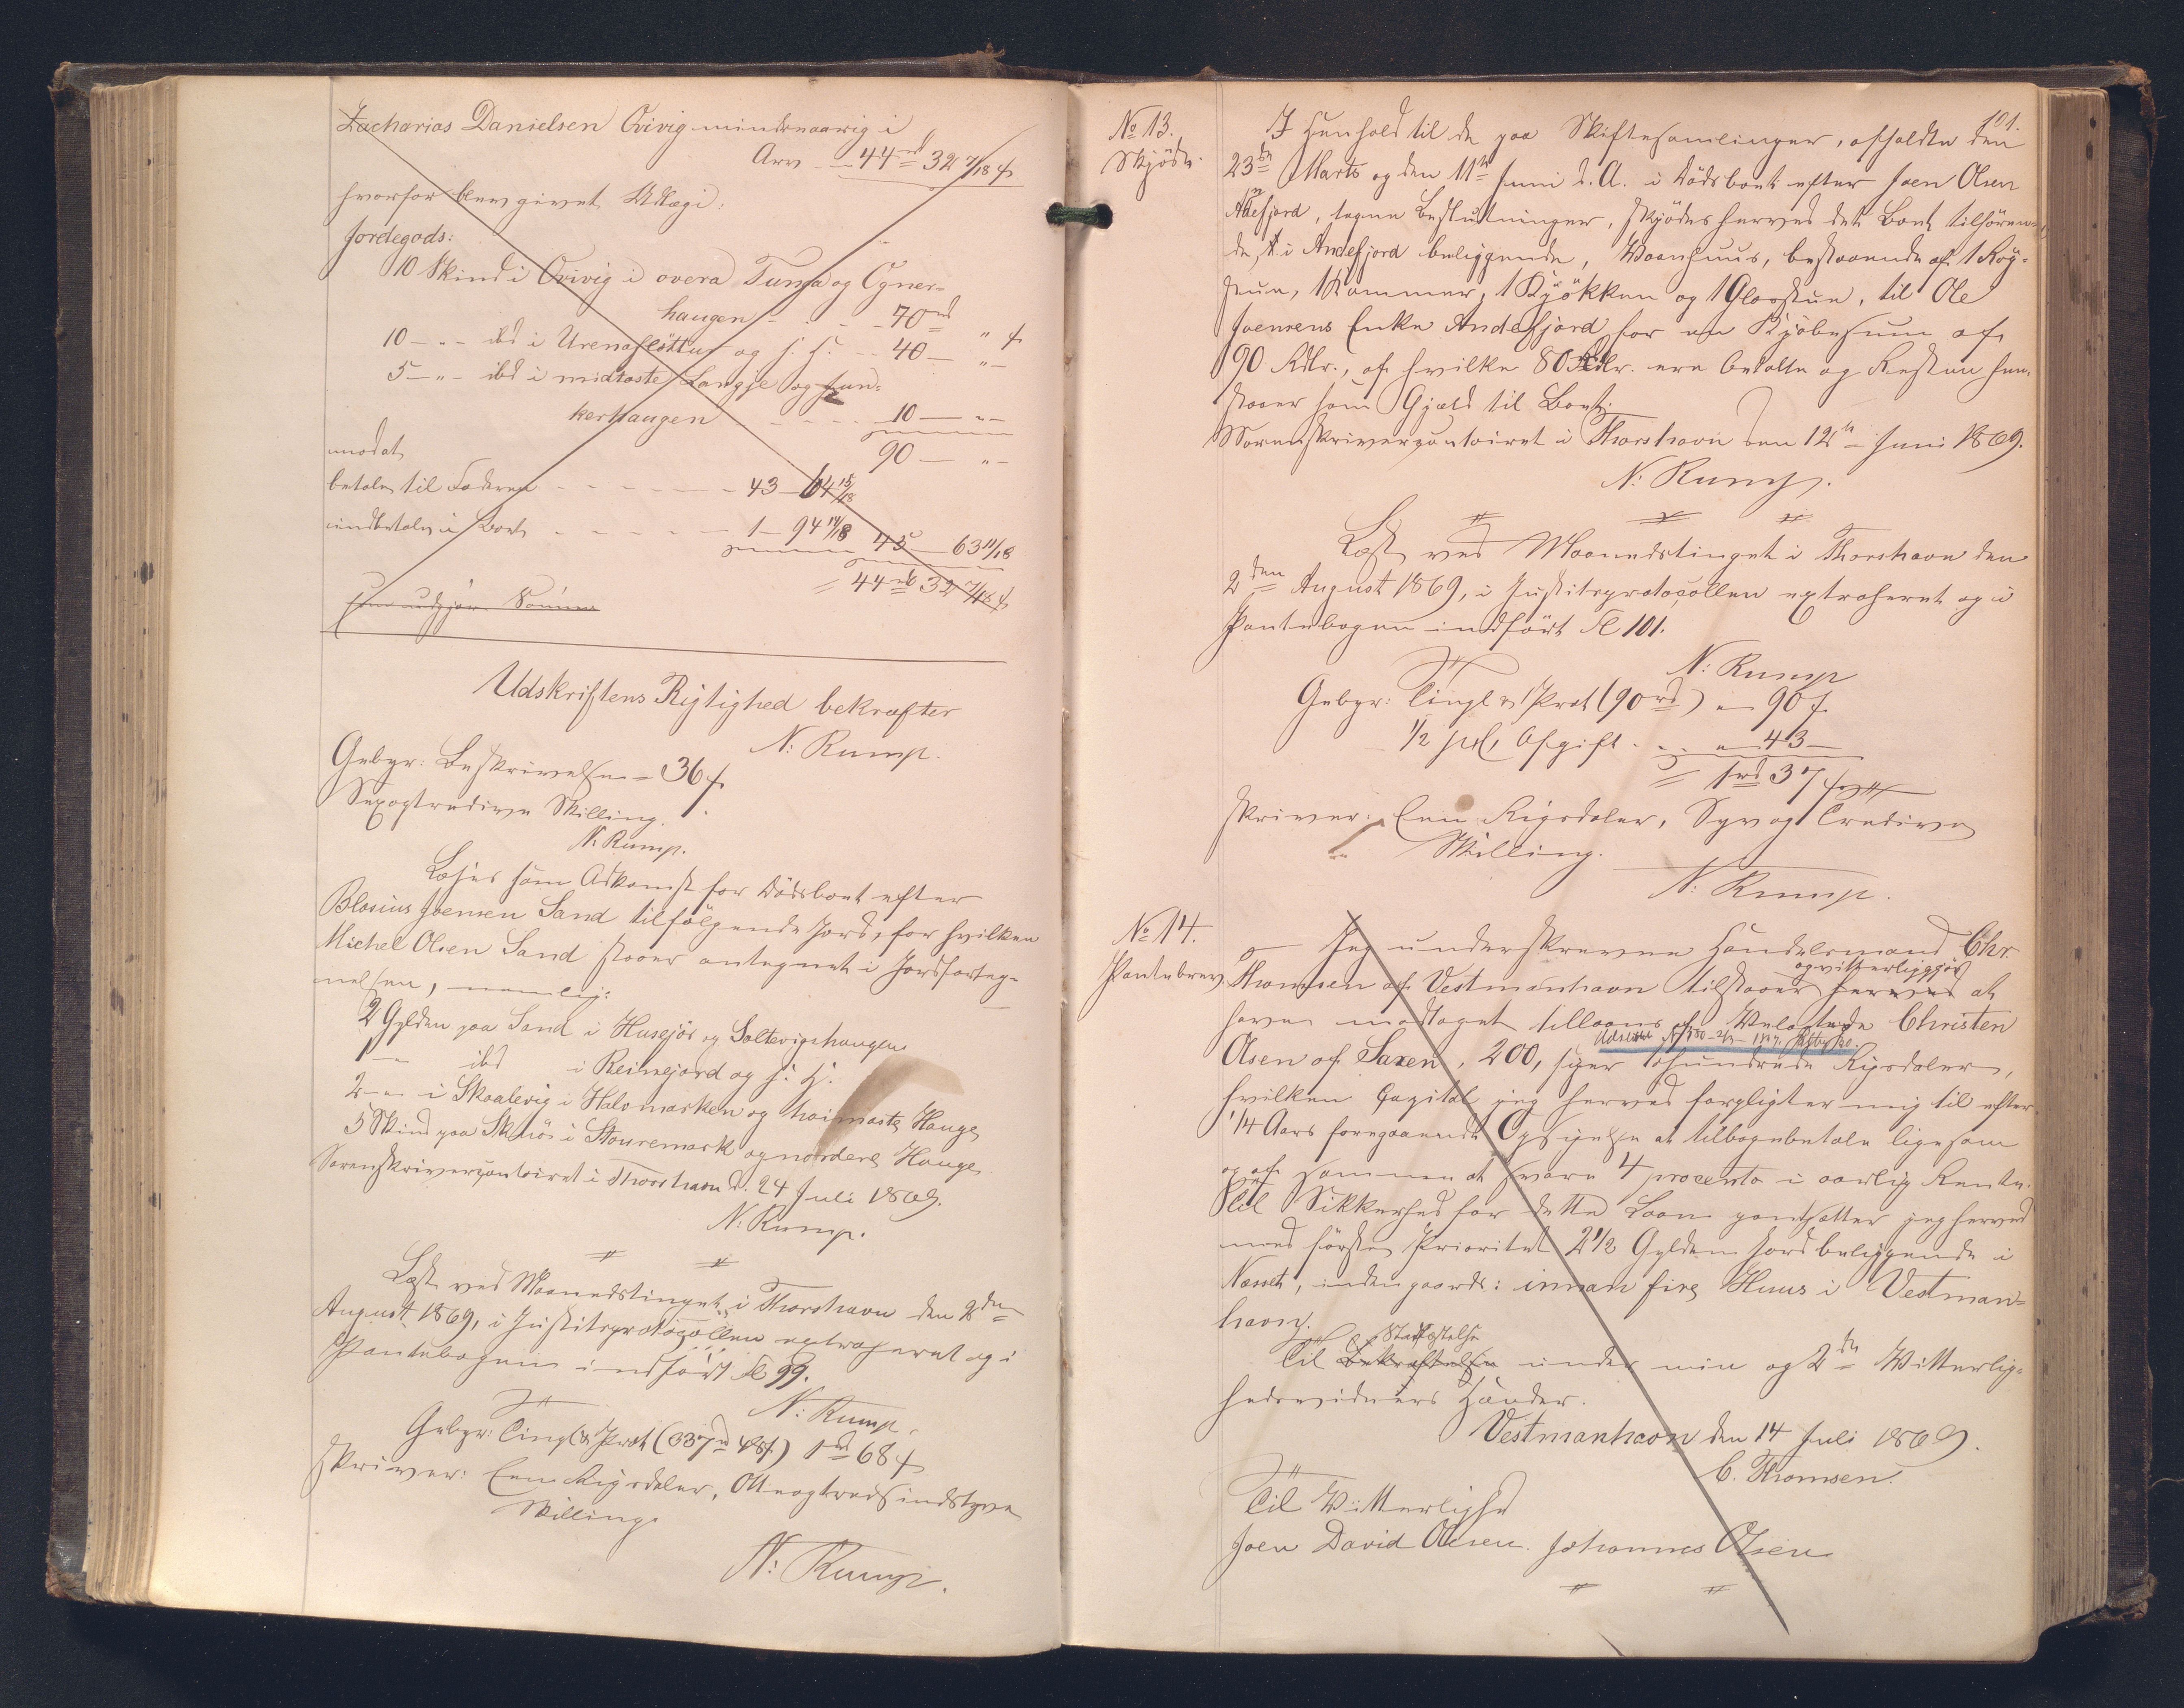 Zacharias Danielsen Qvivig mindreaarig i
Arv — 44 rd 32 7/18 ſs
hvorfor blev givet Udlæg i:
Jordegods:
10 Skind i Qvivig i overa Tunga og Ogner-
haugen - - - 70 rd " ſs
10 — " — ibd i Urenafløttur og f. H. - - 40 — " —
5 — " — ibd i midtaste Langje og Jun-
kerhaugen - - - - 10 — " —
90 — " —
imod at
betale til Faderen - - - - - - 43 — 64 15/18
indbetale i Boet - - - - - 1 — 94 14/18 45 — 63 11/18
= 44 rd 32 7/18 ſs
som udgjør Summa
Udskriftens Rigtighed bekræfter
N: Rump.
Gebyr: Beskrivelsen = 36 ſs
Sexogtredive Skilling.
N: Rump.
Læses som Adkomst for Dødsboet efter
Blasius Joensen Sand tilfølgende Jord, for hvilken
Michel Olsen Sand staaer antegnet i Jordforteg-
nelsen, nemlig:
2 Gylden paa Sand i Husejør og Saltevigshaugen
1 — " — ibd i Reinejord og f. H.
2 — " — i Skaalevig i Halomarken og haimaste Hauge
5 Skind paa Skuø i Stouremark og nordere Hauge
Sorenskrivercontoiret i Thorshavn d. 24 Juli 1869.
N: Rump.
Læst ved Maanedstinget i Thorshavn den 2den
August 1869, i Justitsprotocollen extraheret og i
Pantebogen indført Fol 99.
N: Rump.
Gebyr: Tingl & Prot (337 rd 48 ſs) 1 rd 68 ſs
skriver: Een Rigsdaler, Otteogtredsindstyve
Skilling.
N: Rump.
101.
No 13.
Skjøde.
I Henhold til de paa Skiftesamlinger, afholdte den
23de Marts og den 11te Juni d. A. i Dødsboet efter Joen Olsen
Andefjord, tagne Beslutninger, skjødes herved det Boet tilhøren-
de, i Andefjord beliggende, Vaanhuus, bestaaende af 1 Røg-
stue, 1 Kammer, 1 Kjøkken og 1 Glasstue, til Ole
Joensens Enke Andefjord for en Kjøbesum af
90 Rdlr., af hvilke 80 Rdlr. ere betalte og Resten hen-
staaer som Gjæld til Boet.
Sorenskrivercontoiret i Thorshavn den 12te Juni 1869.
N: Rump.
Læst ved Maanedstinget i Thorshavn den
2den August 1869, i Justitsprotocollen extraheret og i
Pantebogen indført Fol 101.
N: Rump
Gebyr: Tingl & Prot (90 rd) " — 90 ſs
1/2 pCt Afgift - - " — 43 —
= 1 rd 37 ſs
skriver: Een Rigsdaler, Syv og Tredive
Skilling.
N: Rump.
No 14.
Pantebrev
Jeg underskrevne Handelsmand Chr.
og vitterliggjør
Thomsen af Vestmanhavn tilstaaer herved at
have modtaget tillaans af Velagtede Christen
Olsen af Saxen, 200, siger tohundrede Rigsdaler,
hvilken Capital jeg herved forpligter mig til efter
1/4 Aars foregaaende Opsigelse at tilbagebetale ligesom
og af samme at svare 4 procento i aarlig Rente.
Til Sikkerhed for dette Laan pantsætter jeg herved
med første Prioritet 2 1/2 Gylden Jord beliggende i
Nesset, indengaards: innan fire Huus i Vestman-
havn.
Stadfæstelse
Til Bekræftelse under min og 2de Vitterlig-
hedsvidners Hænder.
Vestmanhavn den 14 Juli 1869.
C. Thomsen.
Til Vitterlighed
Joen David Olesen. Johannes Olsen